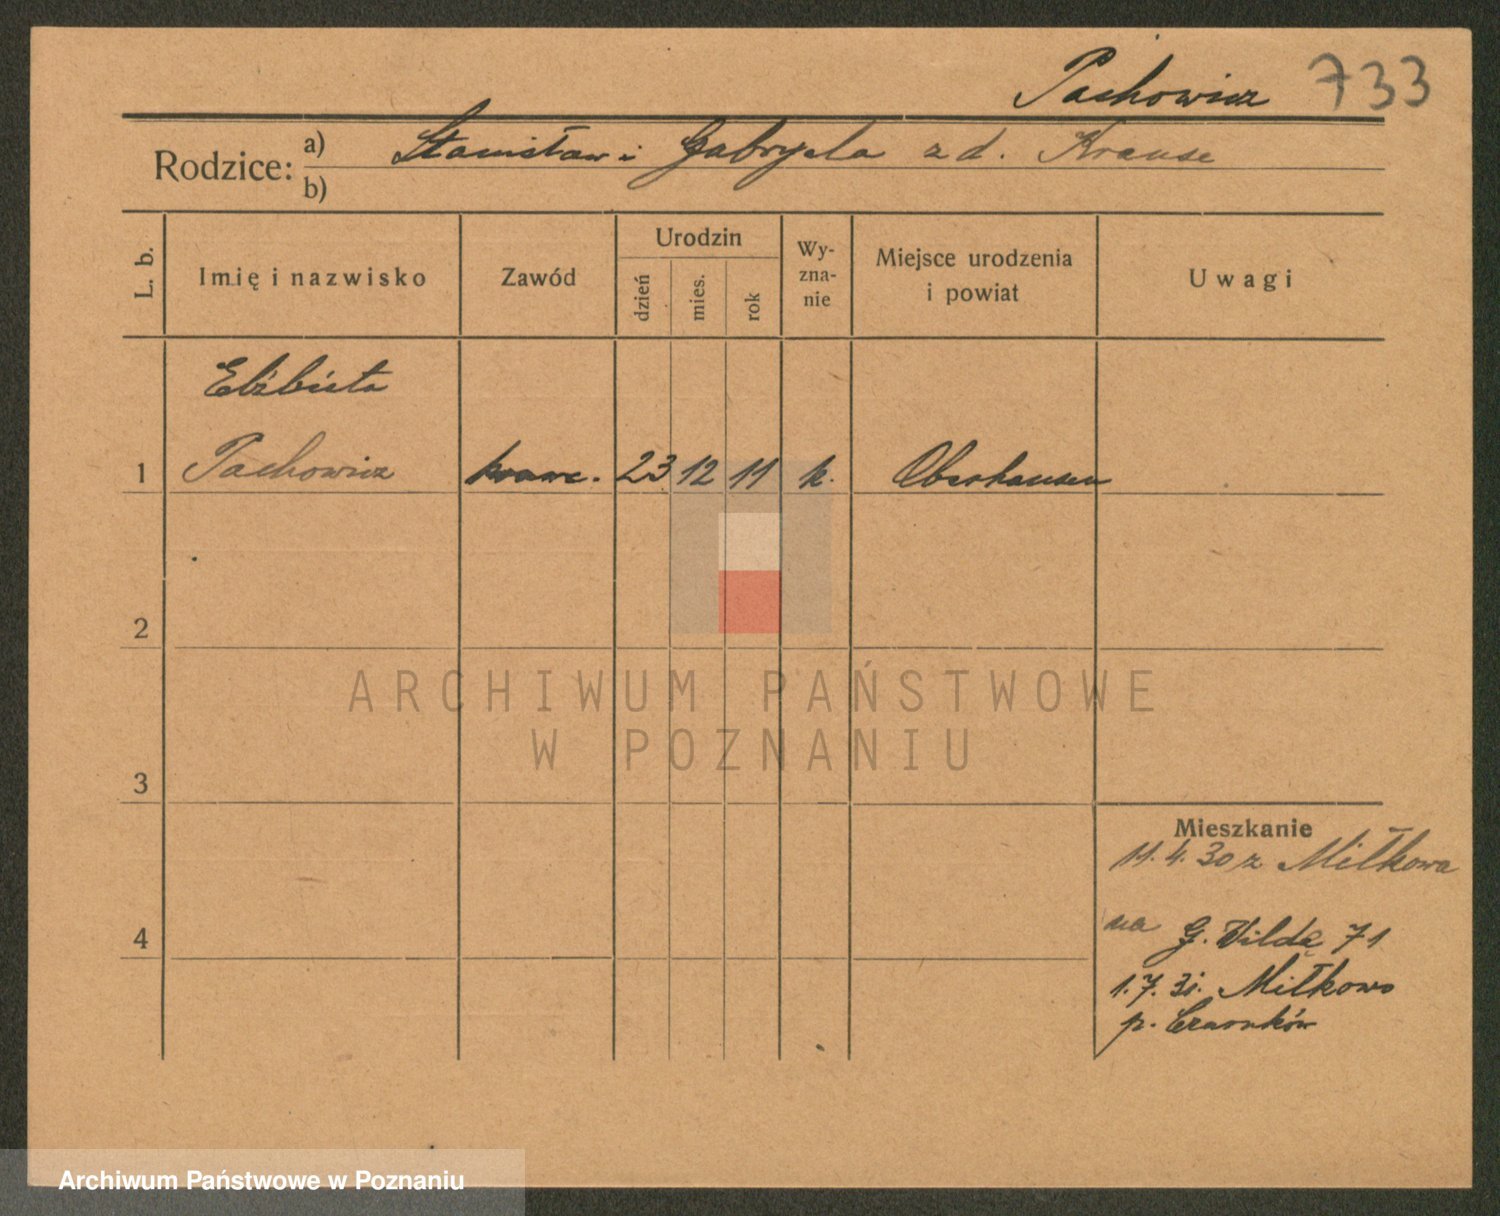 Pachowicz 733
Rodzice: a) Stanisław i Gabryela z d. Krause
b)
L. b. Imię i nazwisko Zawód Urodzin dzień mies. rok Wy-zna-nie Miejsce urodzenia i powiat Uwagi
Elżbieta
1 Pachowicz krawc. 23 12 11 k. Oberhausen
2
ARCHIWUM PAŃSTWOWE
W POZNANIU
3
Mieszkanie
11.4.30 z Miłkowa
4 na G. Wildę 71
1.7.31. Miłkowo
p. Czarnków
Archiwum Państwowe w Poznaniu